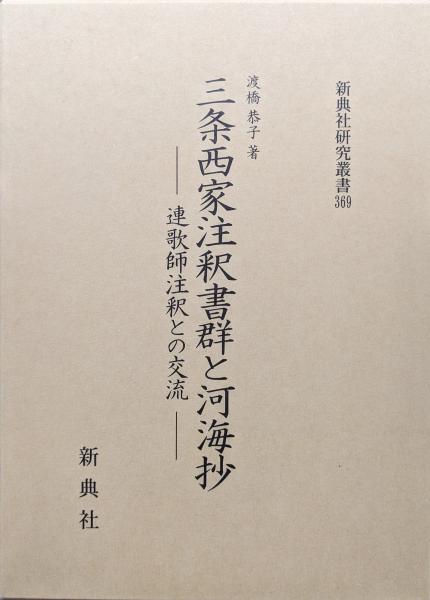 新典社研究叢書369
渡橋恭子 著
三条西家注釈書群と河海抄
――連歌師注釈との交流――
新典社